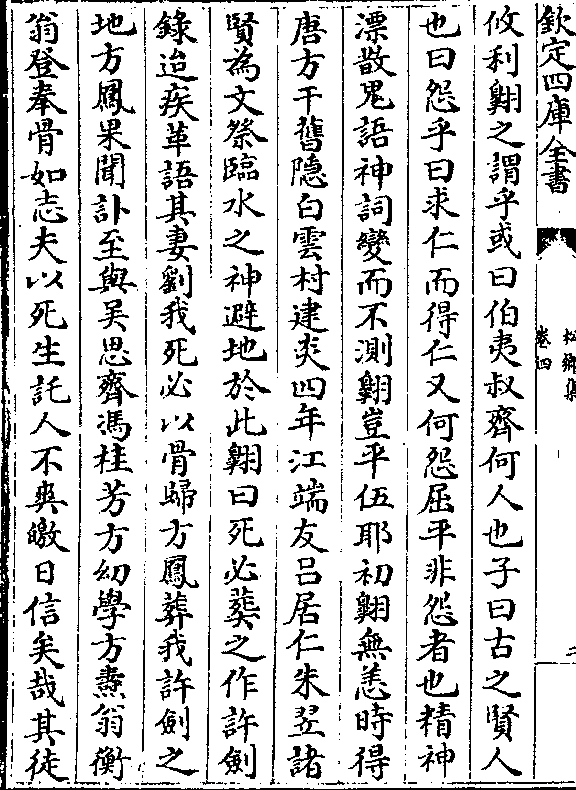 欽定四庫全書
松鄉集
卷四
二
攸利翺之謂乎或曰伯夷叔齊何人也子曰古之賢人
也曰怨乎曰求仁而得仁又何怨屈平非怨者也精神
漂散鬼語神詞變而不測翺豈平伍耶初翺無恙時得
唐方干舊隐白雲村建炎四年江端友吕居仁朱翌諸
賢為文祭臨水之神避地於此翺曰死必葬之作許劍
錄迨疾革語其妻劉我死必以骨歸方鳳葬我許劍之
地方鳳果聞訃至與吴思齊馮桂芳方幼學方燾翁衡
翁登奉骨如志夫以死生託人不爽皦日信矣哉其徒